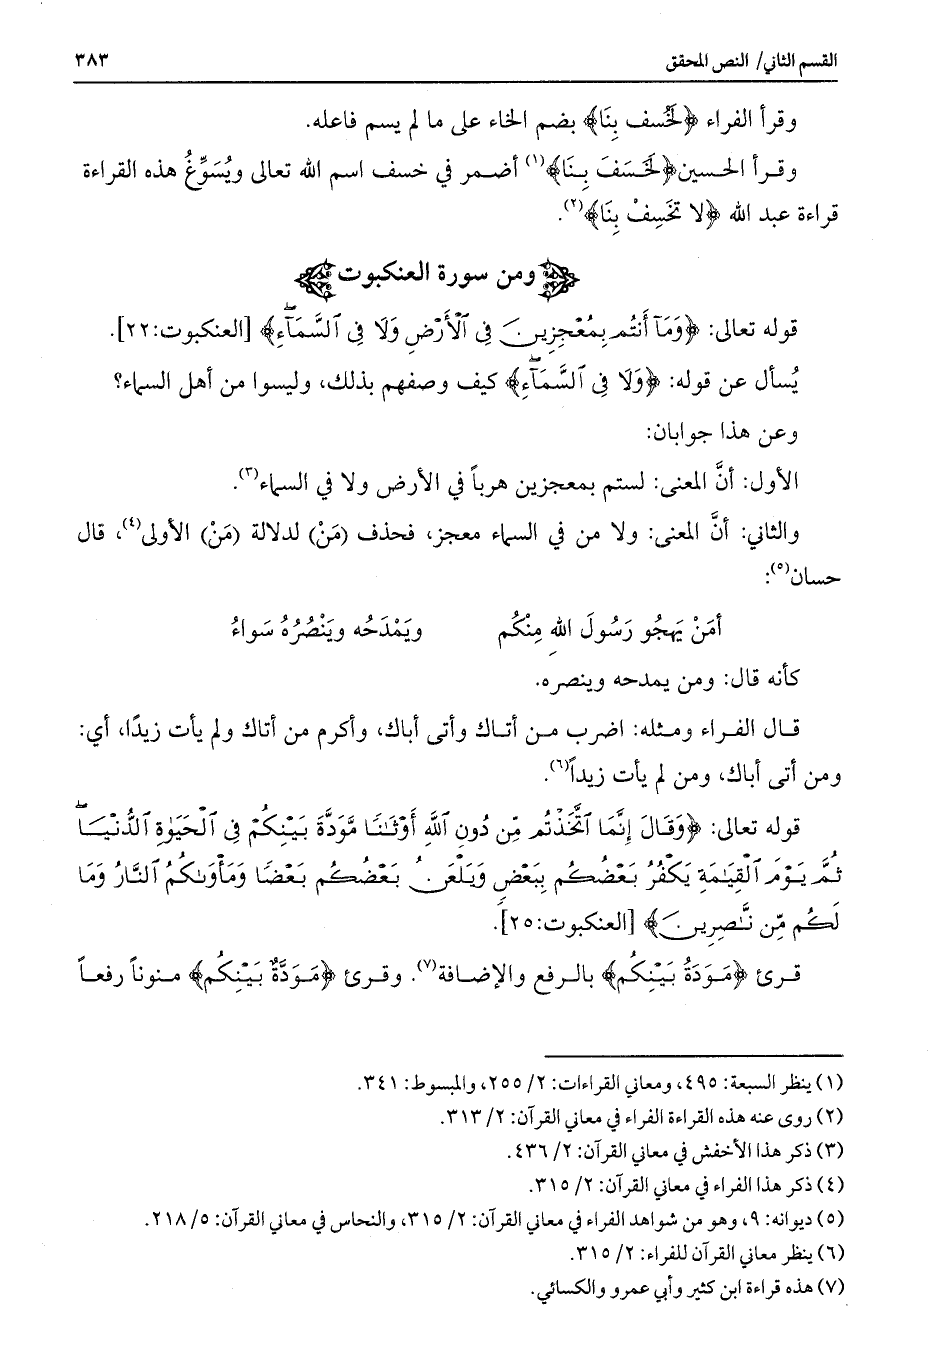 القسم الثاني/ النص المحقق ٣٨٣
وقرأ الفراء ﴿لَخُسف بِنَا﴾ بضم الخاء على ما لم يسم فاعله.
وقرأ الحسين﴿لَخَسَفَ بِنَا﴾(١) أضمر في خسف اسم الله تعالى ويُسَوِّغُ هذه القراءة
قراءة عبد الله ﴿لا تَخَسِفْ بِنَا﴾(٢).
ومن سورة العنكبوت
قوله تعالى: ﴿وَمَآ أَنتُم بِمُعْجِزِينَ فِى ٱلْأَرْضِ وَلَا فِى ٱلسَّمَآءِ ۖ﴾ [العنكبوت:٢٢].
يُسأل عن قوله: ﴿وَلَا فِى ٱلسَّمَآءِ ۖ﴾ كيف وصفهم بذلك، وليسوا من أهل السماء؟
وعن هذا جوابان:
الأول: أنَّ المعنى: لستم بمعجزين هرباً في الأرض ولا في السماء(٣).
والثاني: أنَّ المعنى: ولا من في السماء معجز، فحذف (مَنْ) لدلالة (مَنْ) الأولى(٤)، قال
حسان(٥):
أمَنْ يَهجُو رَسُولَ اللهِ مِنْكُم ويَمْدَحُه ويَنْصُرُهُ سَواءُ
كأنه قال: ومن يمدحه وينصره.
قال الفراء ومثله: اضرب من أتاك وأتى أباك، وأكرم من أتاك ولم يأت زيدًا، أي:
ومن أتى أباك، ومن لم يأت زيداً(٦).
قوله تعالى: ﴿وَقَالَ إِنَّمَا ٱتَّخَذْتُم مِّن دُونِ ٱللَّهِ أَوْثَـٰنًا مَّوَدَّةَ بَيْنِكُمْ فِى ٱلْحَيَوٰةِ ٱلدُّنْيَا ۖ
ثُمَّ يَوْمَ ٱلْقِيَـٰمَةِ يَكْفُرُ بَعْضُكُم بِبَعْضٍ وَيَلْعَنُ بَعْضُكُم بَعْضًا وَمَأْوَىٰكُمُ ٱلنَّارُ وَمَا
لَكُم مِّن نَّـٰصِرِينَ﴾ [العنكبوت:٢٥].
قرئ ﴿مَوَدَّةُ بَيْنِكُم﴾ بالرفع والإضافة(٧). وقرئ ﴿مَوَدَّةٌ بَيْنِكُم﴾ منوناً رفعاً
(١) ينظر السبعة: ٤٩٥، ومعاني القراءات: ٢/ ٢٥٥، والمبسوط: ٣٤١.
(٢) روى عنه هذه القراءة الفراء في معاني القرآن: ٢/ ٣١٣.
(٣) ذكر هذا الأخفش في معاني القرآن: ٢/ ٤٣٦.
(٤) ذكر هذا الفراء في معاني القرآن: ٢/ ٣١٥.
(٥) ديوانه: ٩، وهو من شواهد الفراء في معاني القرآن: ٢/ ٣١٥، والنحاس في معاني القرآن: ٥/ ٢١٨.
(٦) ينظر معاني القرآن للفراء: ٢/ ٣١٥.
(٧) هذه قراءة ابن كثير وأبي عمرو والكسائي.